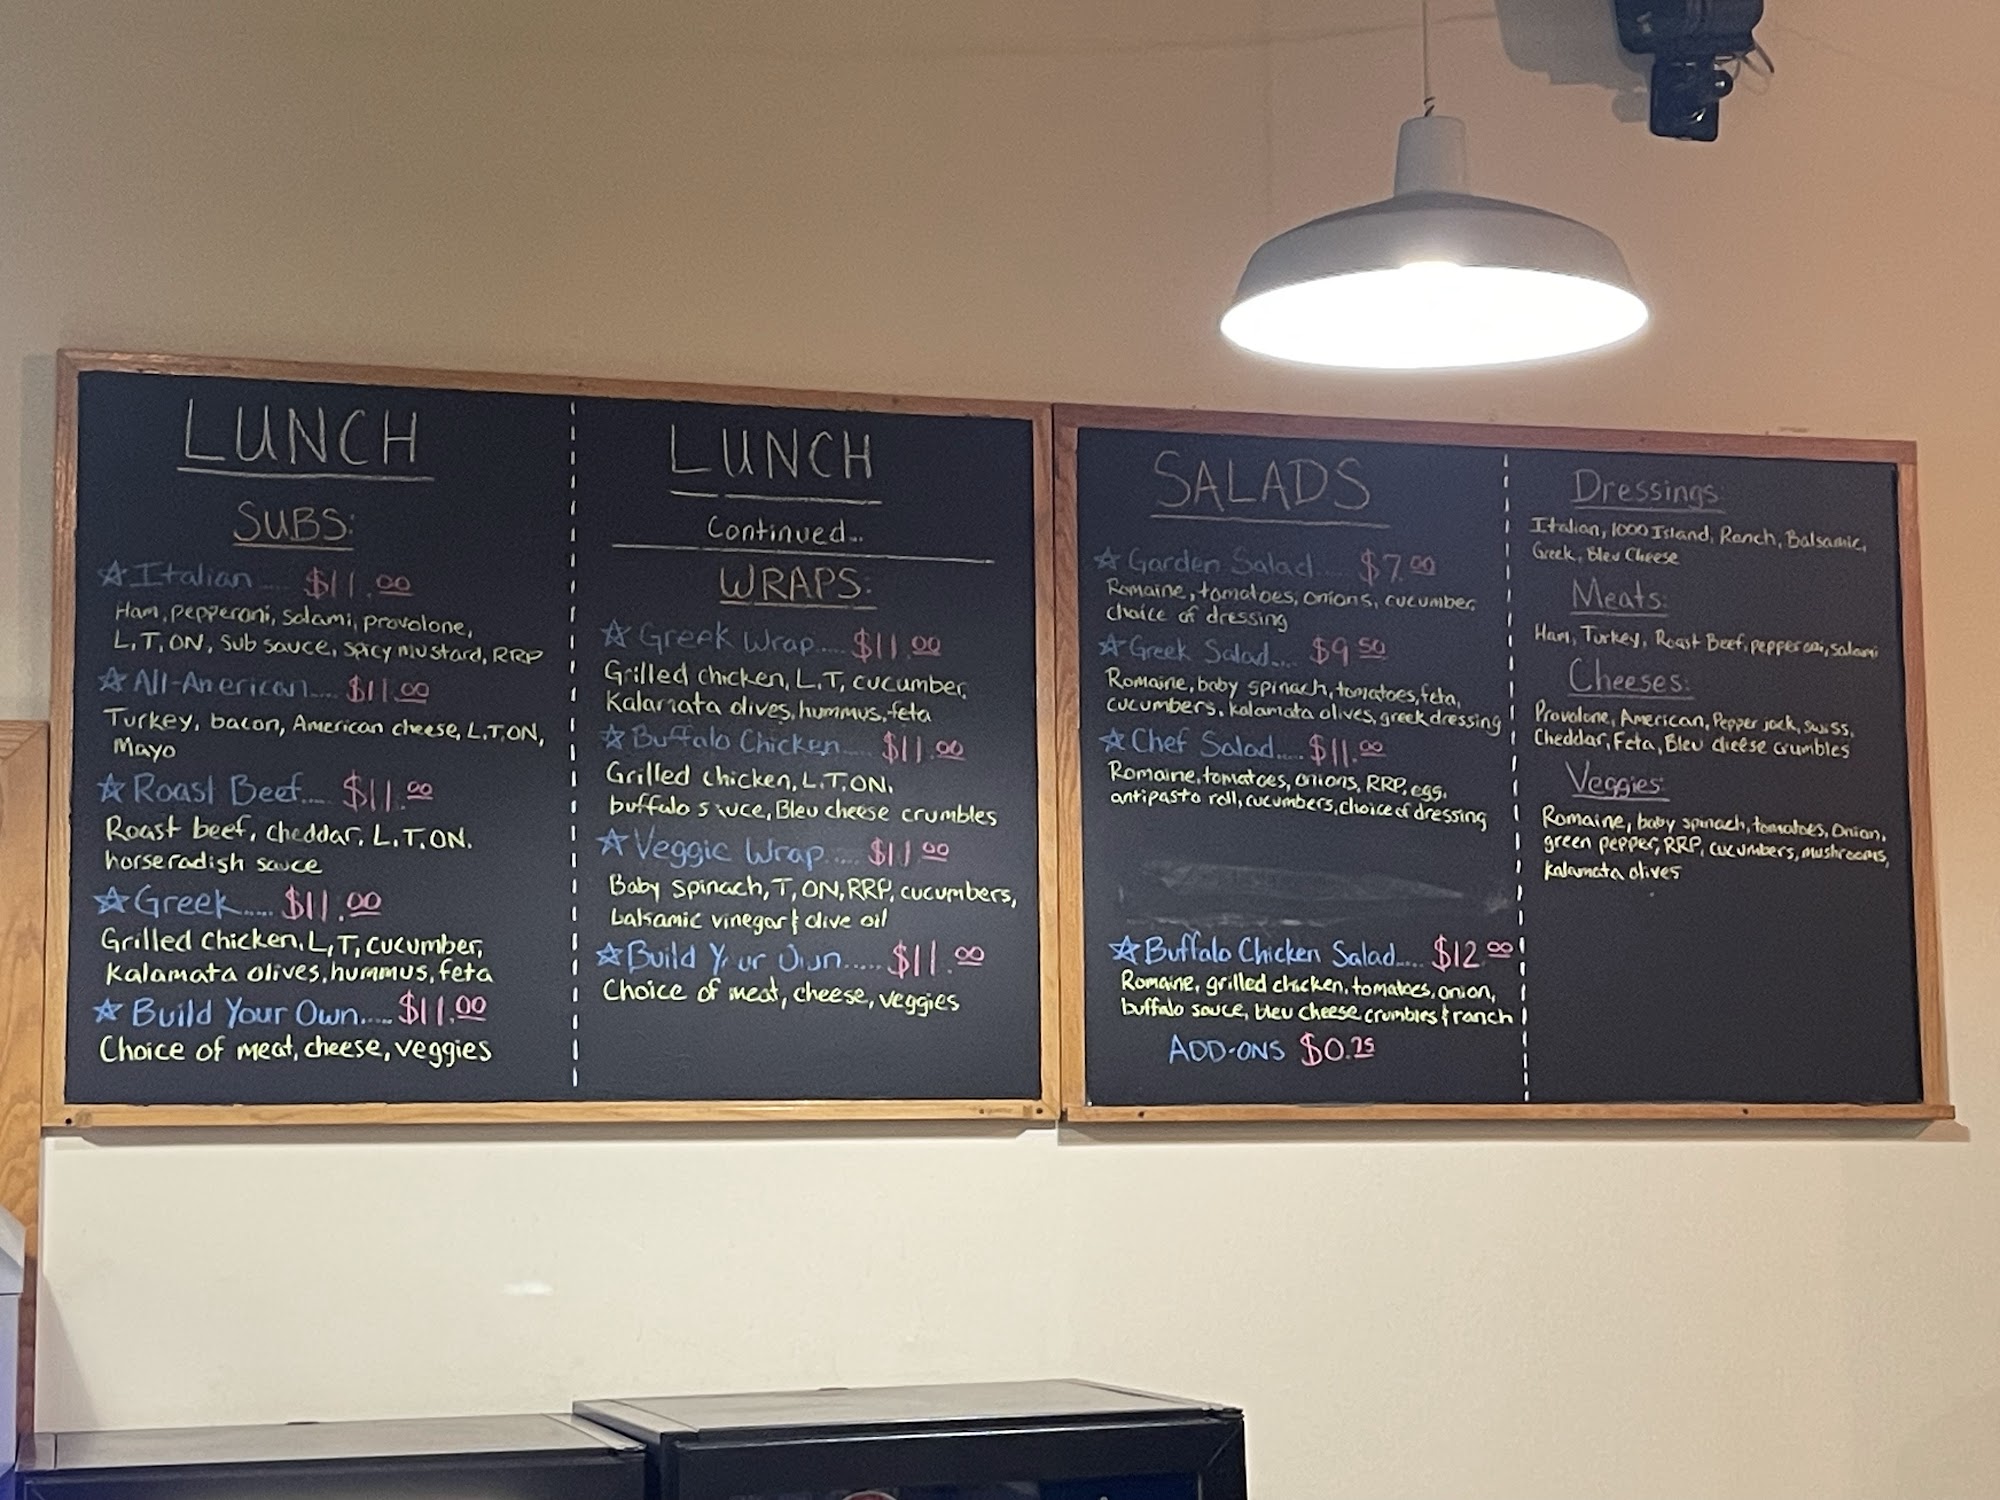 LUNCH
SUBS:
☆Italian.... $11.00
Ham, pepperoni, salami, provolone,
L, T, ON, sub sauce, spicy mustard, RRP
☆All-American.... $11.00
Turkey, bacon, American cheese, L,T,ON,
Mayo
☆Roast Beef.... $11.00
Roast beef, cheddar, L,T,ON,
horseradish sauce
☆Greek.... $11.00
Grilled chicken, L, T, cucumber,
Kalamata olives, hummus, feta
☆Build Your Own..... $11.00
Choice of meat, cheese, veggies
LUNCH
Continued...
WRAPS:
☆Greek Wrap..... $11.00
Grilled chicken, L, T, cucumber,
Kalamata olives, hummus, feta
☆Buffalo Chicken..... $11.00
Grilled chicken, L,T,ON,
buffalo sauce, Bleu cheese crumbles
☆Veggie Wrap..... $11.00
Baby spinach, T, ON, RRP, cucumbers,
balsamic vinegar & olive oil
☆Build Your Own..... $11.00
Choice of meat, cheese, veggies
SALADS
☆Garden Salad..... $7.00
Romaine, tomatoes, onions, cucumber,
choice of dressing
☆Greek Salad.... $9.50
Romaine, baby spinach, tomatoes, feta,
cucumbers, kalamata olives, greek dressing
☆Chef Salad.... $11.00
Romaine, tomatoes, onions, RRP, egg,
antipasto roll, cucumbers, choice of dressing
☆Buffalo Chicken Salad.... $12.00
Romaine, grilled chicken, tomatoes, onion,
buffalo sauce, bleu cheese crumbles & ranch
ADD-ONS $0.75
Dressings:
Italian, 1000 Island, Ranch, Balsamic,
Greek, Bleu Cheese
Meats:
Ham, Turkey, Roast Beef, pepperoni, salami
Cheeses:
Provolone, American, Pepper jack, Swiss,
Cheddar, Feta, Bleu cheese crumbles
Veggies:
Romaine, baby spinach, tomatoes, Onion,
green pepper, RRP, cucumbers, mushrooms,
kalamata olives